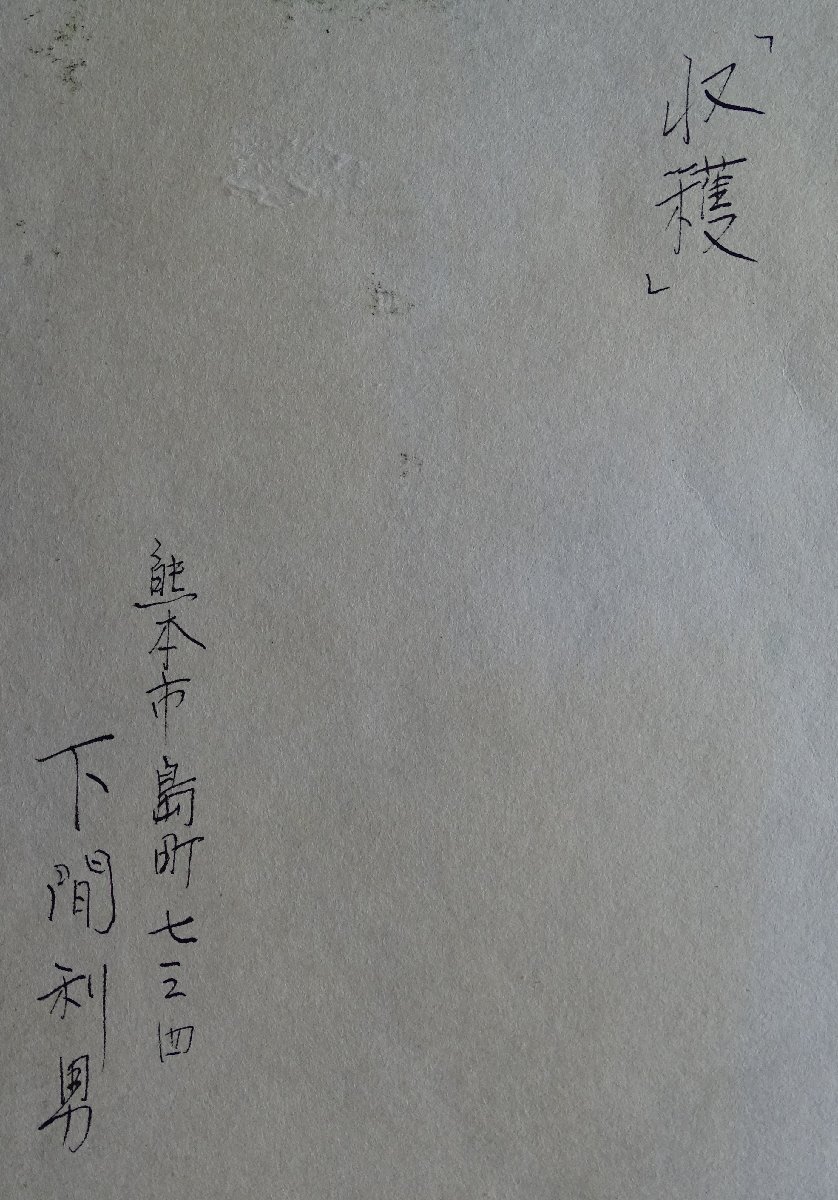 「収穫」
熊本市島町七三四
下間利男